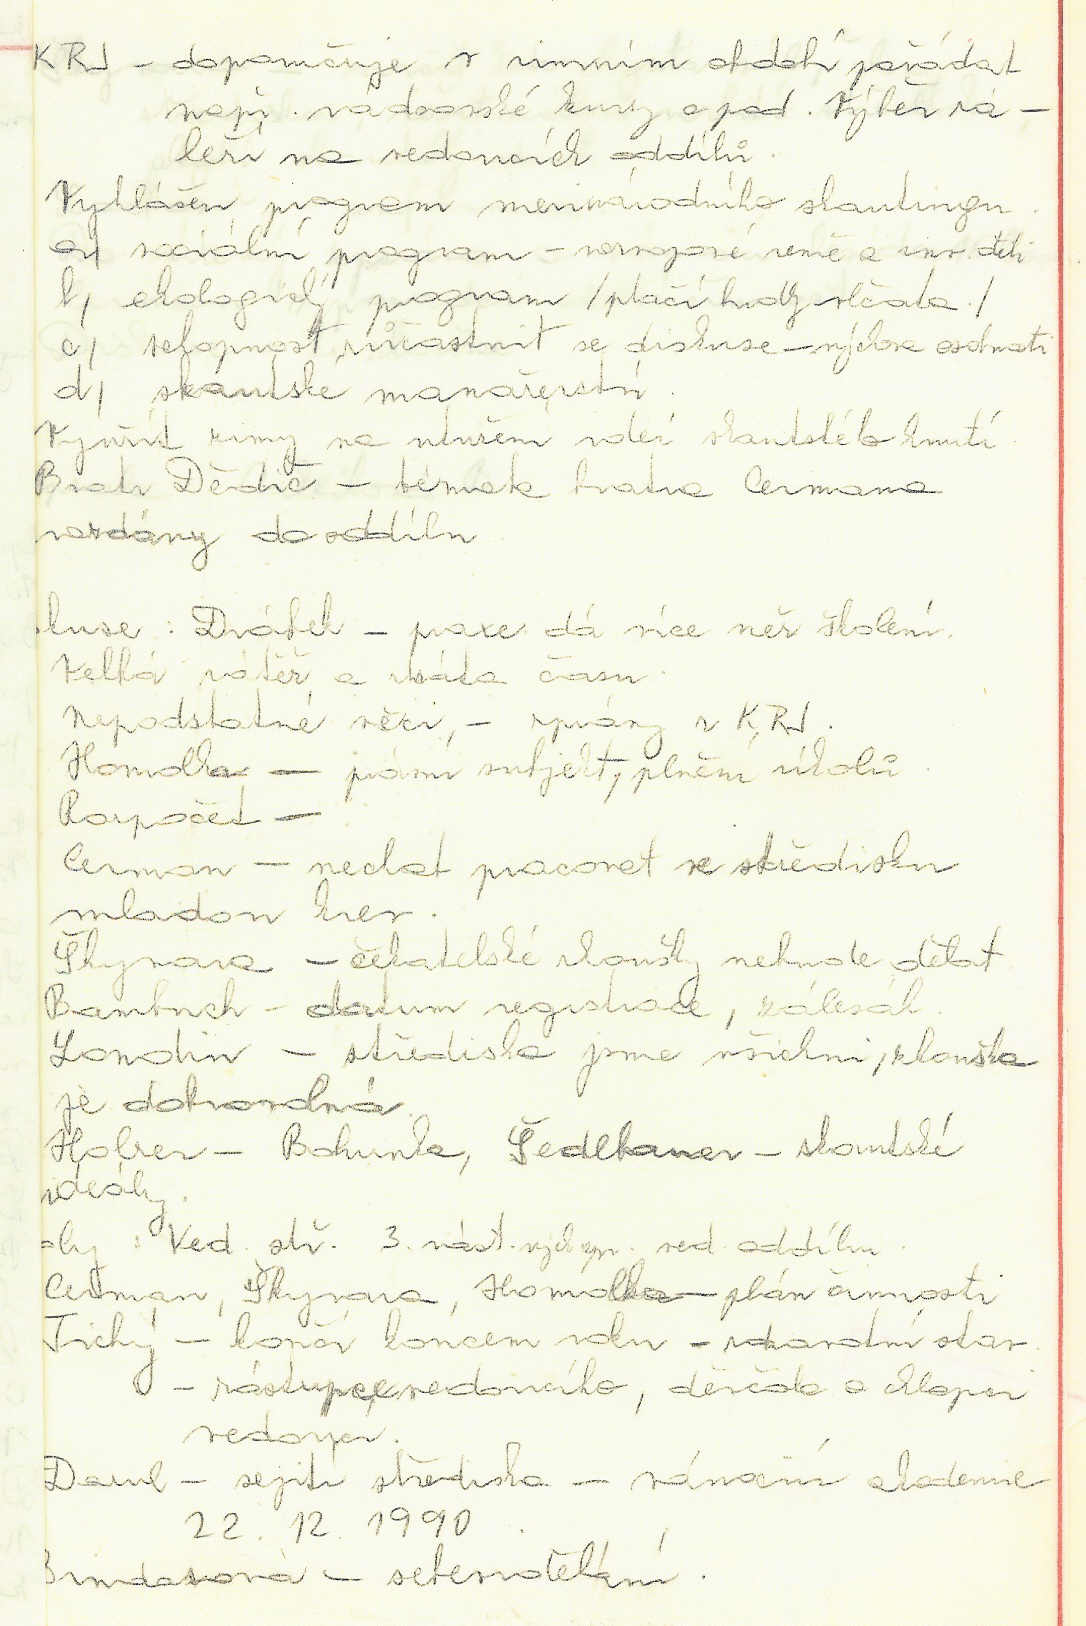 KRJ – doporučuje v zimním období pořádat
např. rádcovské kurzy a pod. Výběr zá–
leží na vedoucích oddílů.
Vyhlášen program mezinárodního skautingu.
a) sociální program – rozvojové země a inv. děti
b) ekologický program /ptačí budky vlčata./
c) schopnost zúčastnit se diskuse – výchova osobnosti
d) skautske manažerství.
Využít zimy na utužení idejí skautského hnutí.
Bratr Dědič – témata bratra Cermana
rozdány do oddílu

kuse : Drábek – praxe dá více než školení.
Velká zátěž a ztráta času.
Nepodstatné věci, – zprávy z KRJ.
Homolka – právní subjekt, plnění úkolů.
Rozpočet –
Cerman – nechat pracovat ve středisku
mladou krev.
Škyvara – čekatelské zkoušky nebude dělat
Bambuch – datum registrace, zálesák.
Londin – středisko jsme všichni, zkouška
je dobrovolná.
Holzer – Bohunka, Šedlbauer – skautské
ideály.
olby : Ved. stř. 3. zást. ved. oddílu.
Cerman, Škyvara, Homolka – plán činnosti
Tichý – končí koncem roku – zdravotní stav.
– zástupce vedoucího, děvčata a chlapci
vedoucí.
Darul – sejití střediska – vánoční akademie
22. 12. 1990.
Brindasová – sebevzdělání.